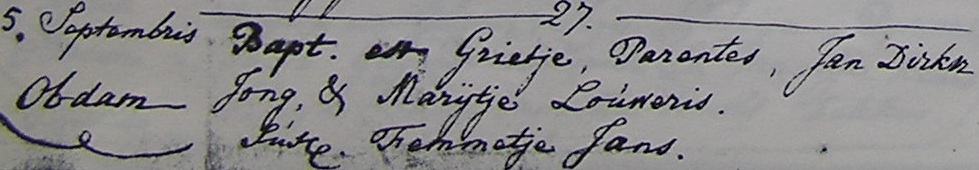 27.
5. Septembris Bapt. est Grietje, Parentes, Jan Dirksz
Obdam Jong, & Marijtje Loúweris.
Súsc. Femmetje Jans.